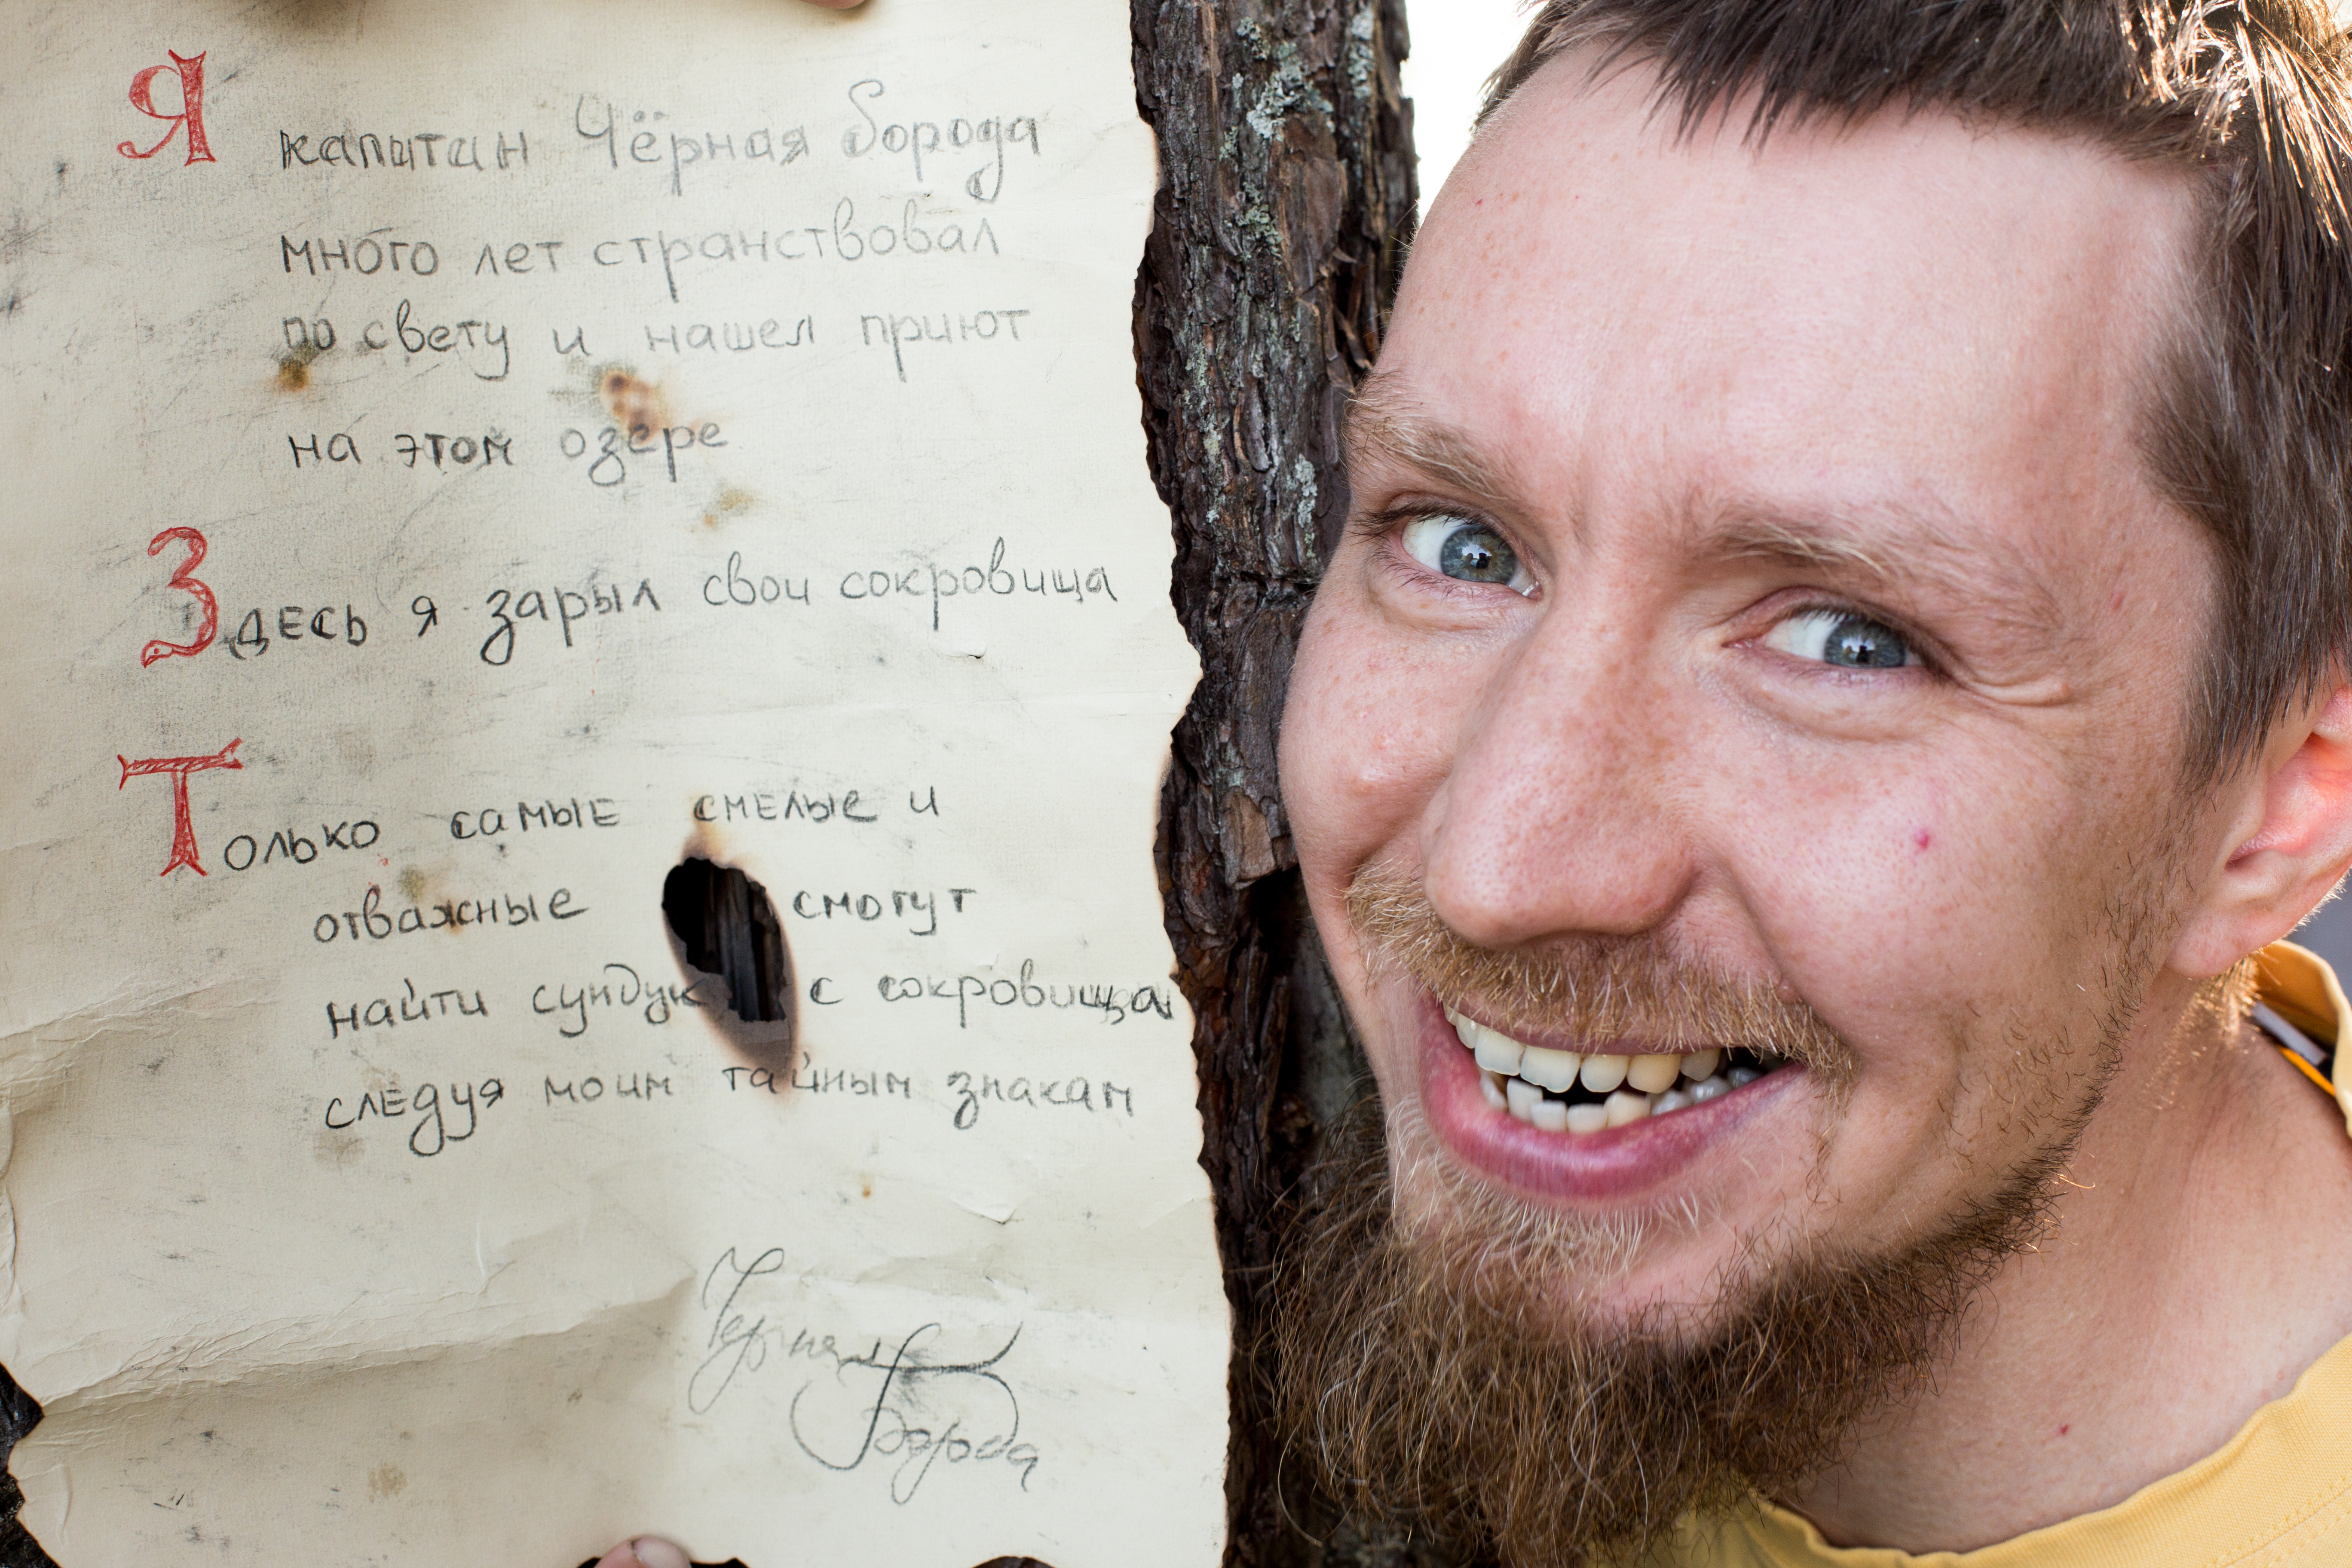 Я капитан Чёрная борода
много лет странствовал
по свету и нашел приют
на этом озере
Здесь я зарыл свои сокровища
Только самые смелые и
отважные смогут
найти сундук с сокровищам
следуя моим тайным знакам
Черная
Борода